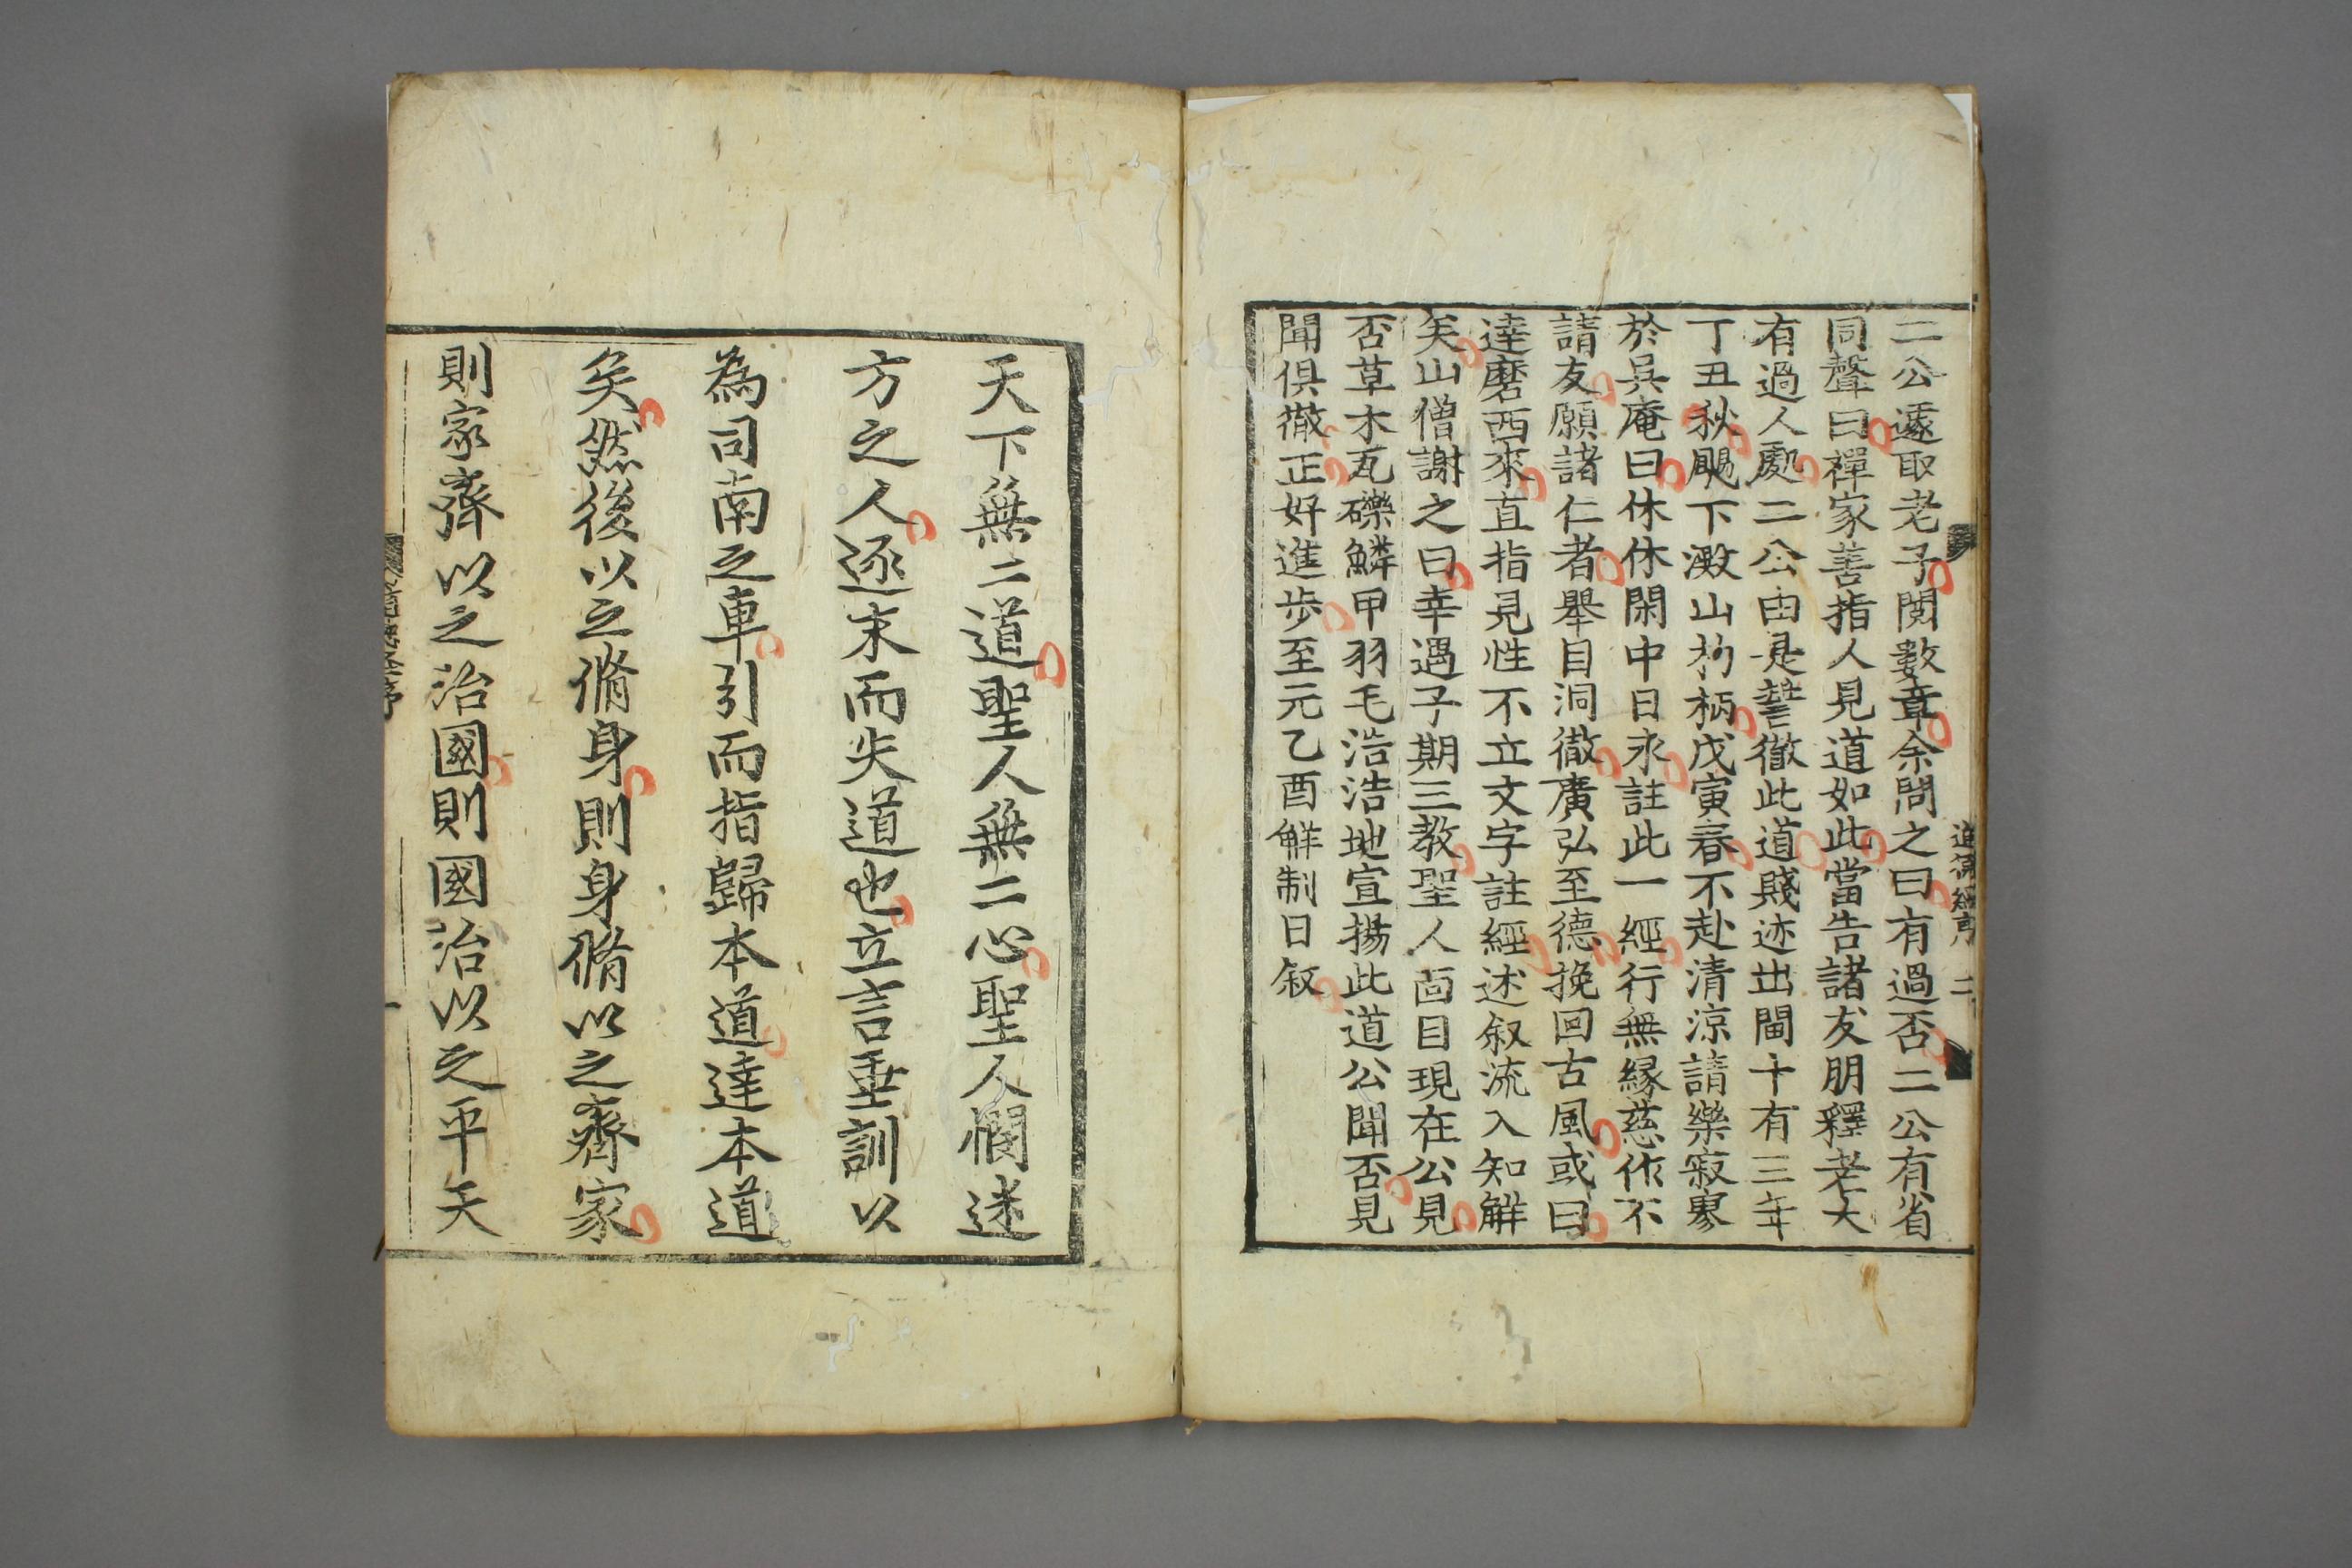 二公遽取老子閱數章余問之曰有過否二公有省
同聲曰禪家善指人見道如此當告諸友朋釋老大
有過人處二公由是誓徹此道賤迹出閩十有三年
丁丑秋颺下澉山杓柄戊寅春不赴清涼請樂寂寥
於吳庵曰休休閑中日永註此一經行無緣慈作不
請友願諸仁者舉目洞徹廣弘至德挽回古風或曰
達磨西來直指見性不立文字註經述叙流入知解
矣山僧謝之曰幸遇子期三教聖人面目現在公見
否草木瓦礫鱗甲羽毛浩浩地宣揚此道公聞否見
聞俱徹正好進步至元乙酉解制日叙
道德經序 二
天下無二道聖人無二心聖人憫迷
方之人逐末而失道也立言垂訓以
為司南之車引而指歸本道達本道
矣然後以之脩身則身脩以之齊家
則家齊以之治國則國治以之平天